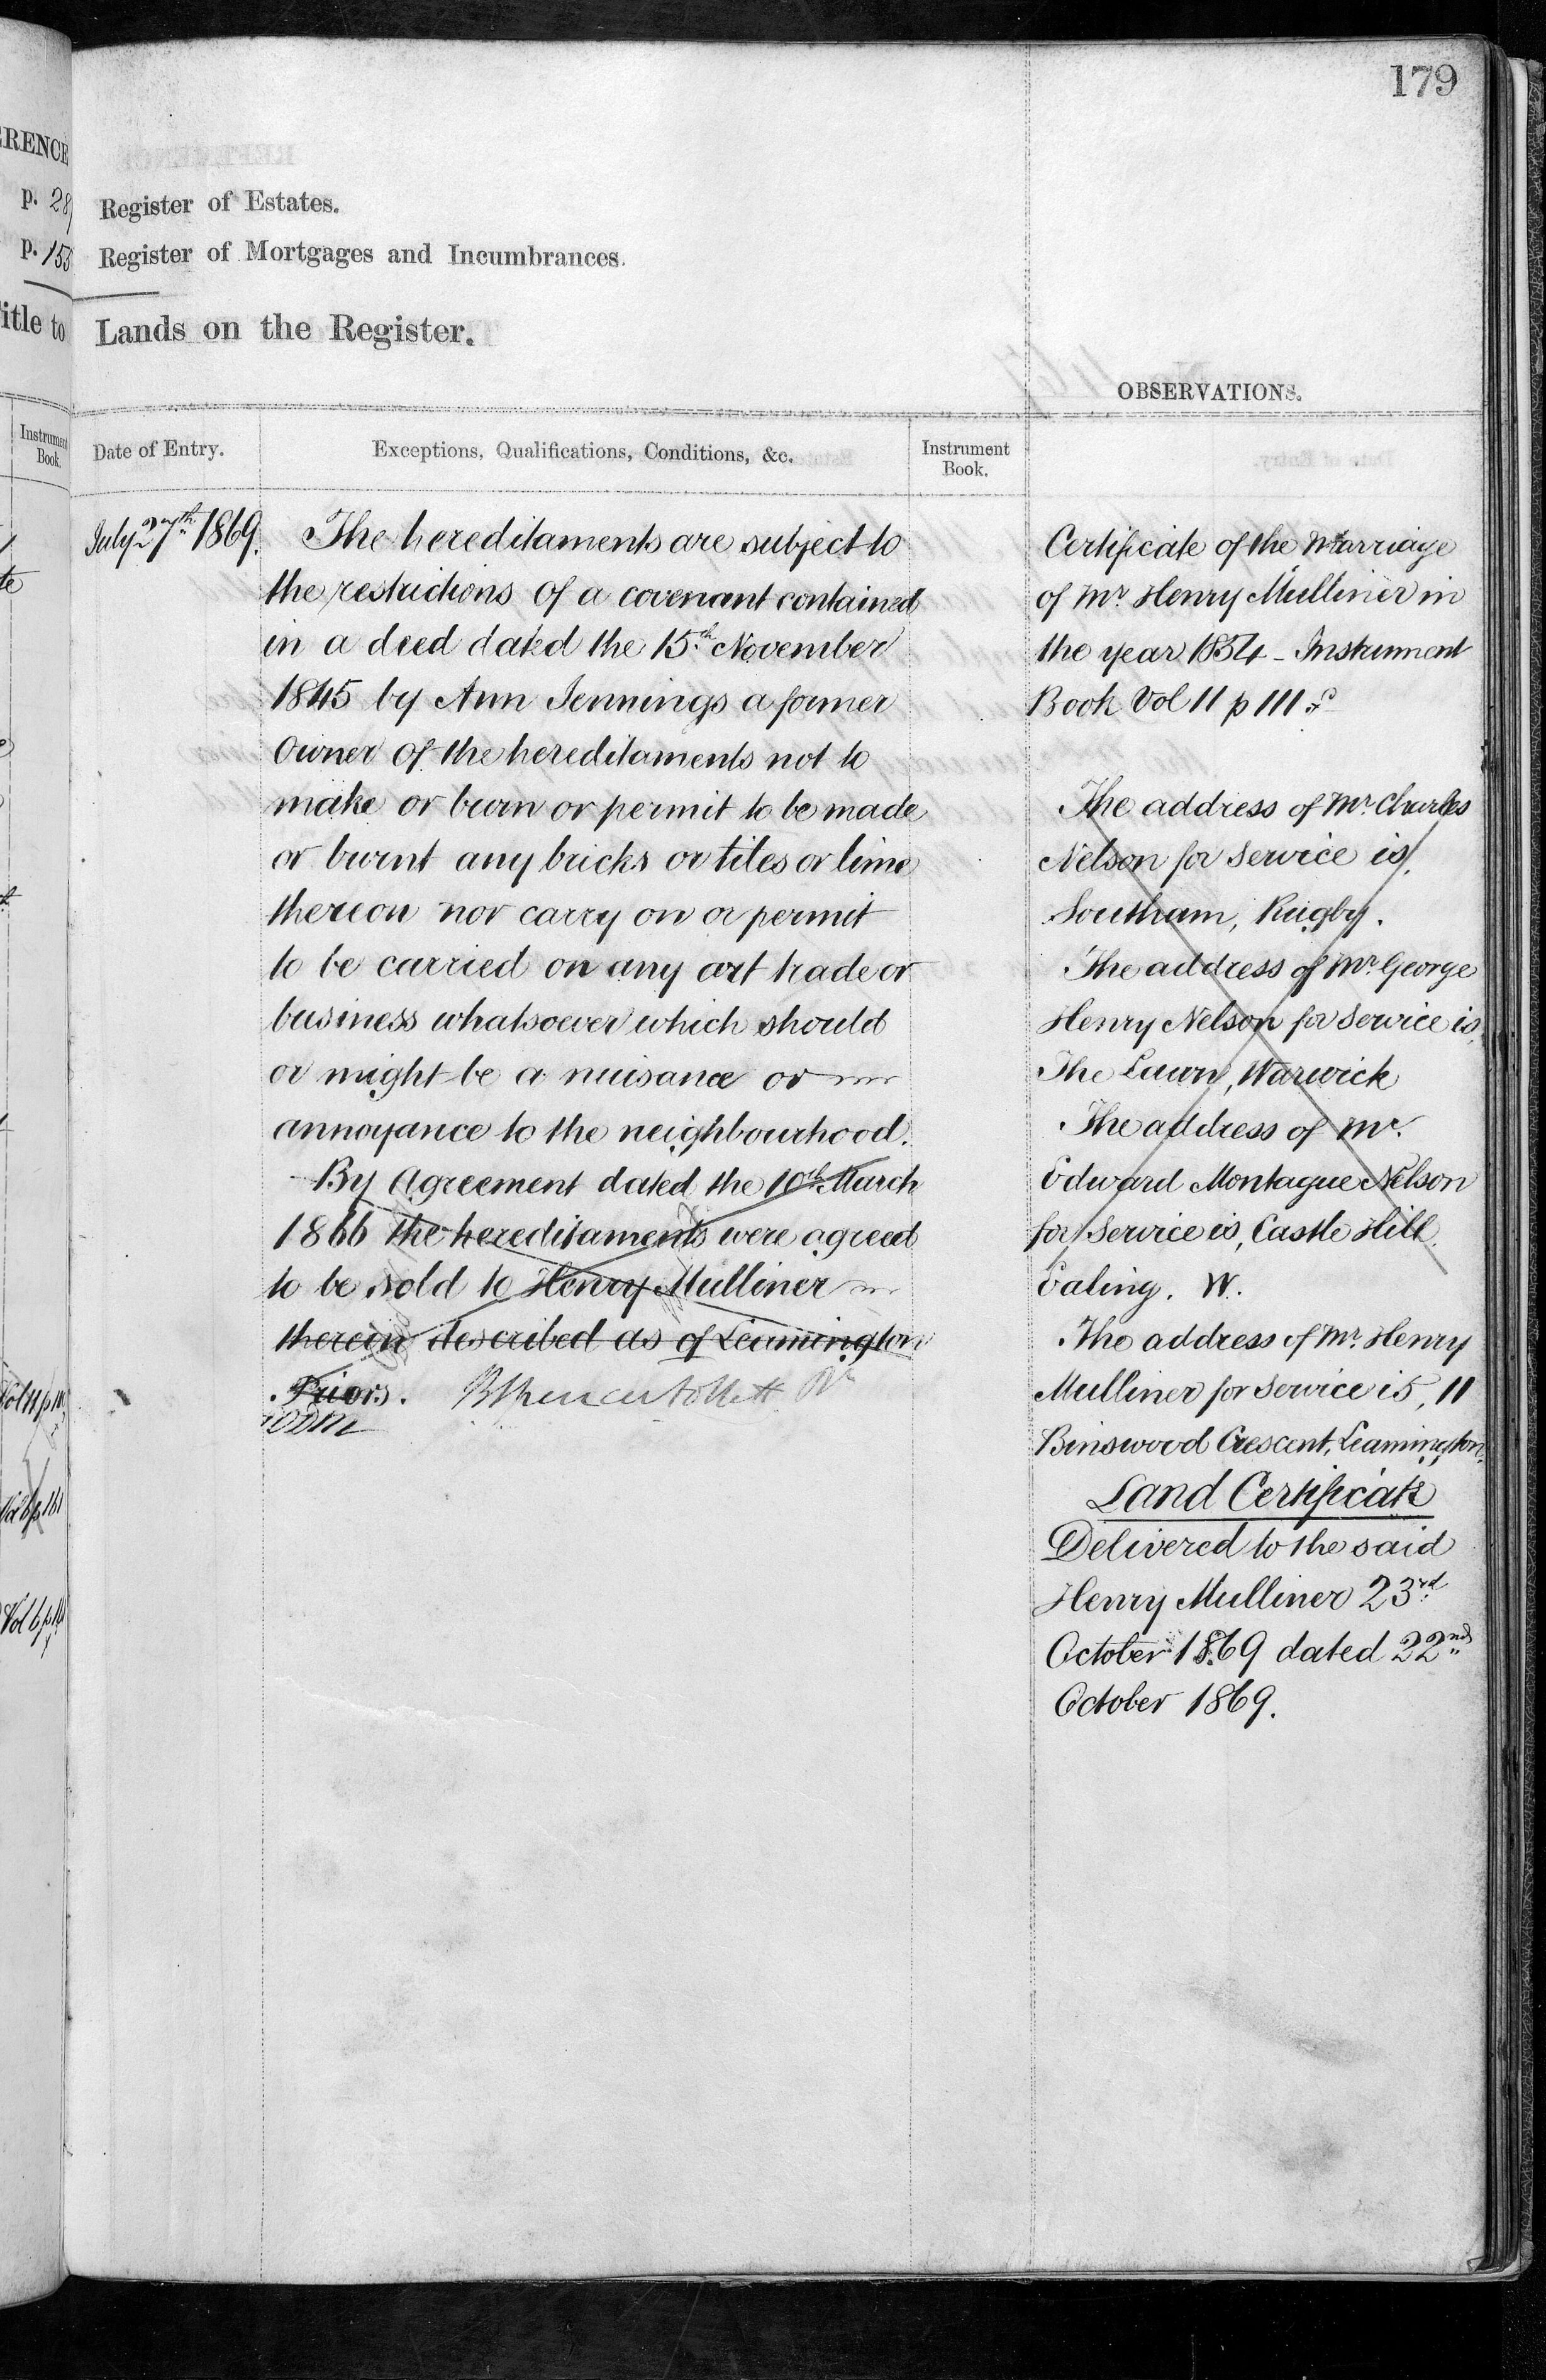 179
RENCE
p. 28
p. 155
itle to
Instrument
Book.
Register of Estates.
Register of Mortgages and Incumbrances.
Lands on the Register.
OBSERVATIONS.
Date of Entry.
Exceptions, Qualifications, Conditions, &c.
Instrument
Book.
July 27th 1869.
The hereditaments are subject to
the restrictions of a covenant contained
in a deed dated the 15th November
1845 by Ann Jennings a former
Owner of the hereditaments not to
make or burn or permit to be made
or burnt any bricks or tiles or lime
thereon nor carry on or permit
to be carried on any art trade or
business whatsoever which should
or might be a nuisance or
annoyance to the neighbourhood.
By Agreement dated the 10th March
1866 the hereditaments were agreed
to be sold to Henry Mulliner
therein described as of Leamington
Priors. B Spencer Follett
Certificate of the Marriage
of Mr. Henry Mulliner in
the year 1854 - Instrument
Book Vol 11 p 111
The address of Mr. Charles
Nelson for Service is,
Southam, Rugby.
The address of Mr. George
Henry Nelson for Service is,
The Lawn, Warwick
The address of Mr.
Edward Montague Nelson
for Service is, Castle Hill,
Ealing. W.
The address of Mr. Henry
Mulliner for Service is, 11
Binswood Crescent, Leamington.
Land Certificate
Delivered to the said
Henry Mulliner 23rd
October 1869 dated 22nd
October 1869.